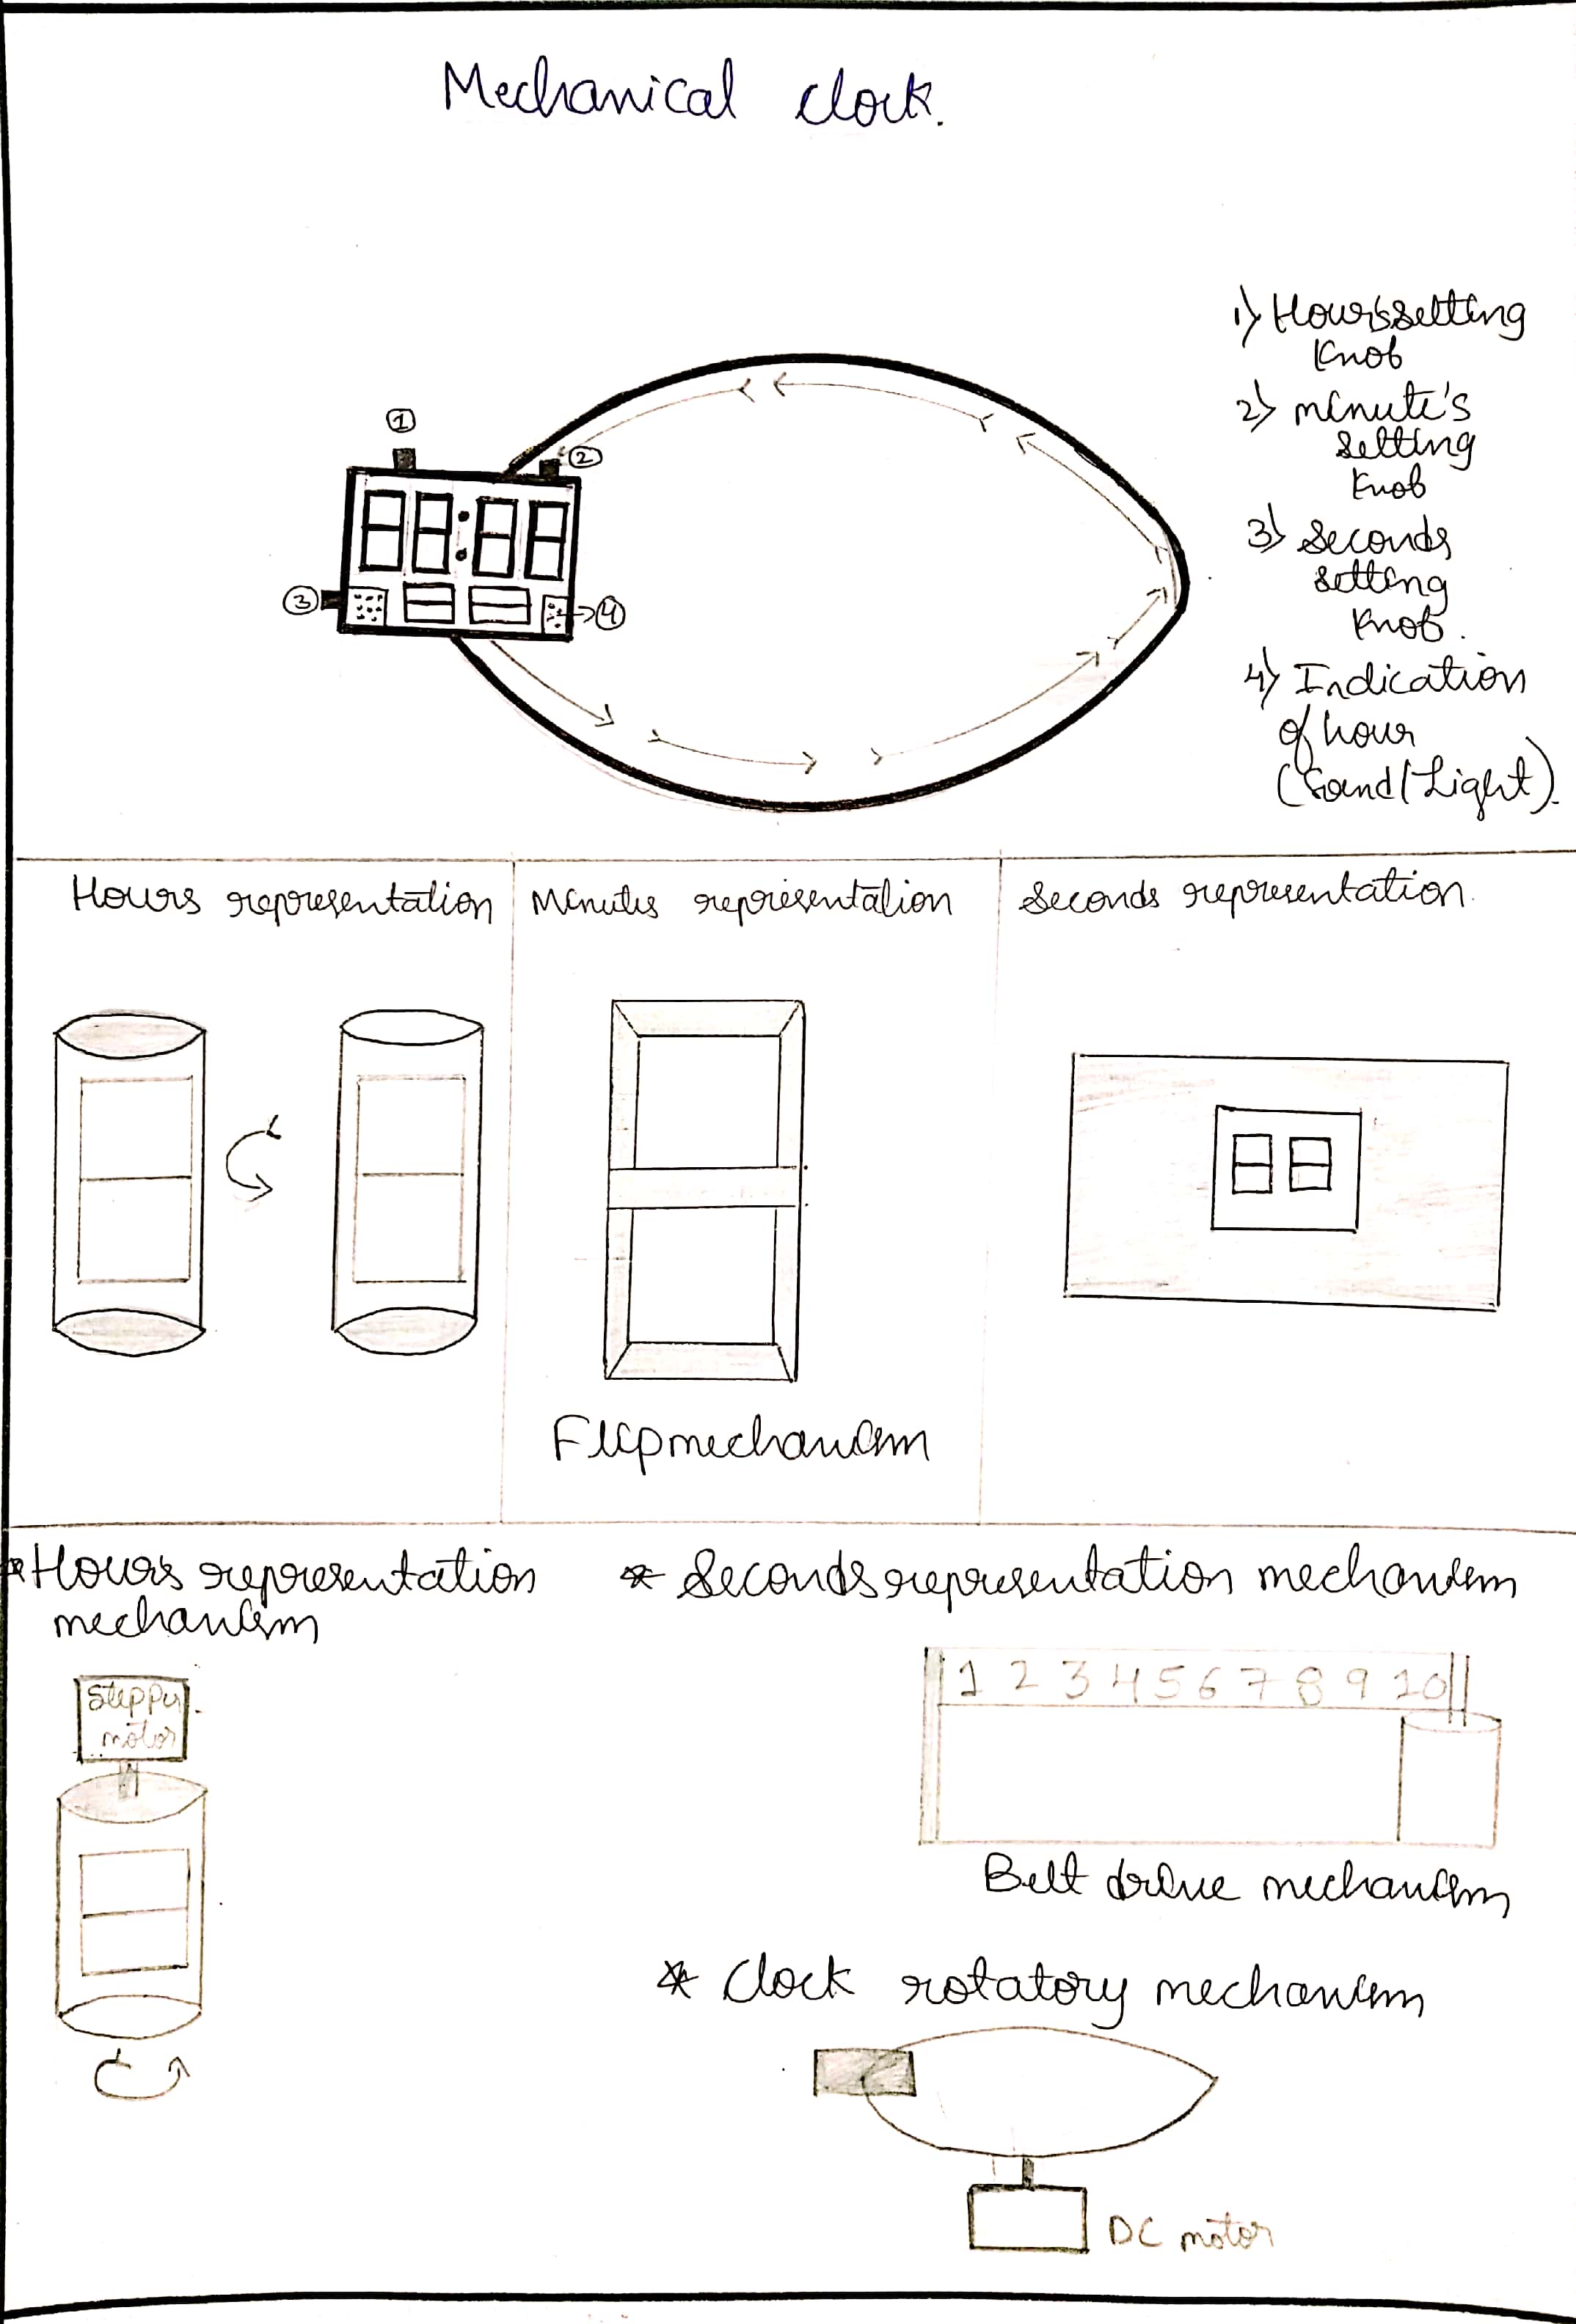 Mechanical clock.
1) Hour's setting
Knob
2) minute's
setting
Knob
3) Seconds
setting
Knob.
4) Indication
of hour
(Sound/Light).
①
②
③
④
Hours representation
Minutes representation
Seconds representation.
Flip mechanism
* Hour's representation
mechanism
* Seconds representation mechanism
Stepper
motor
1 2 3 4 5 6 7 8 9 10
Belt drive mechanism
* Clock rotatory mechanism
DC motor